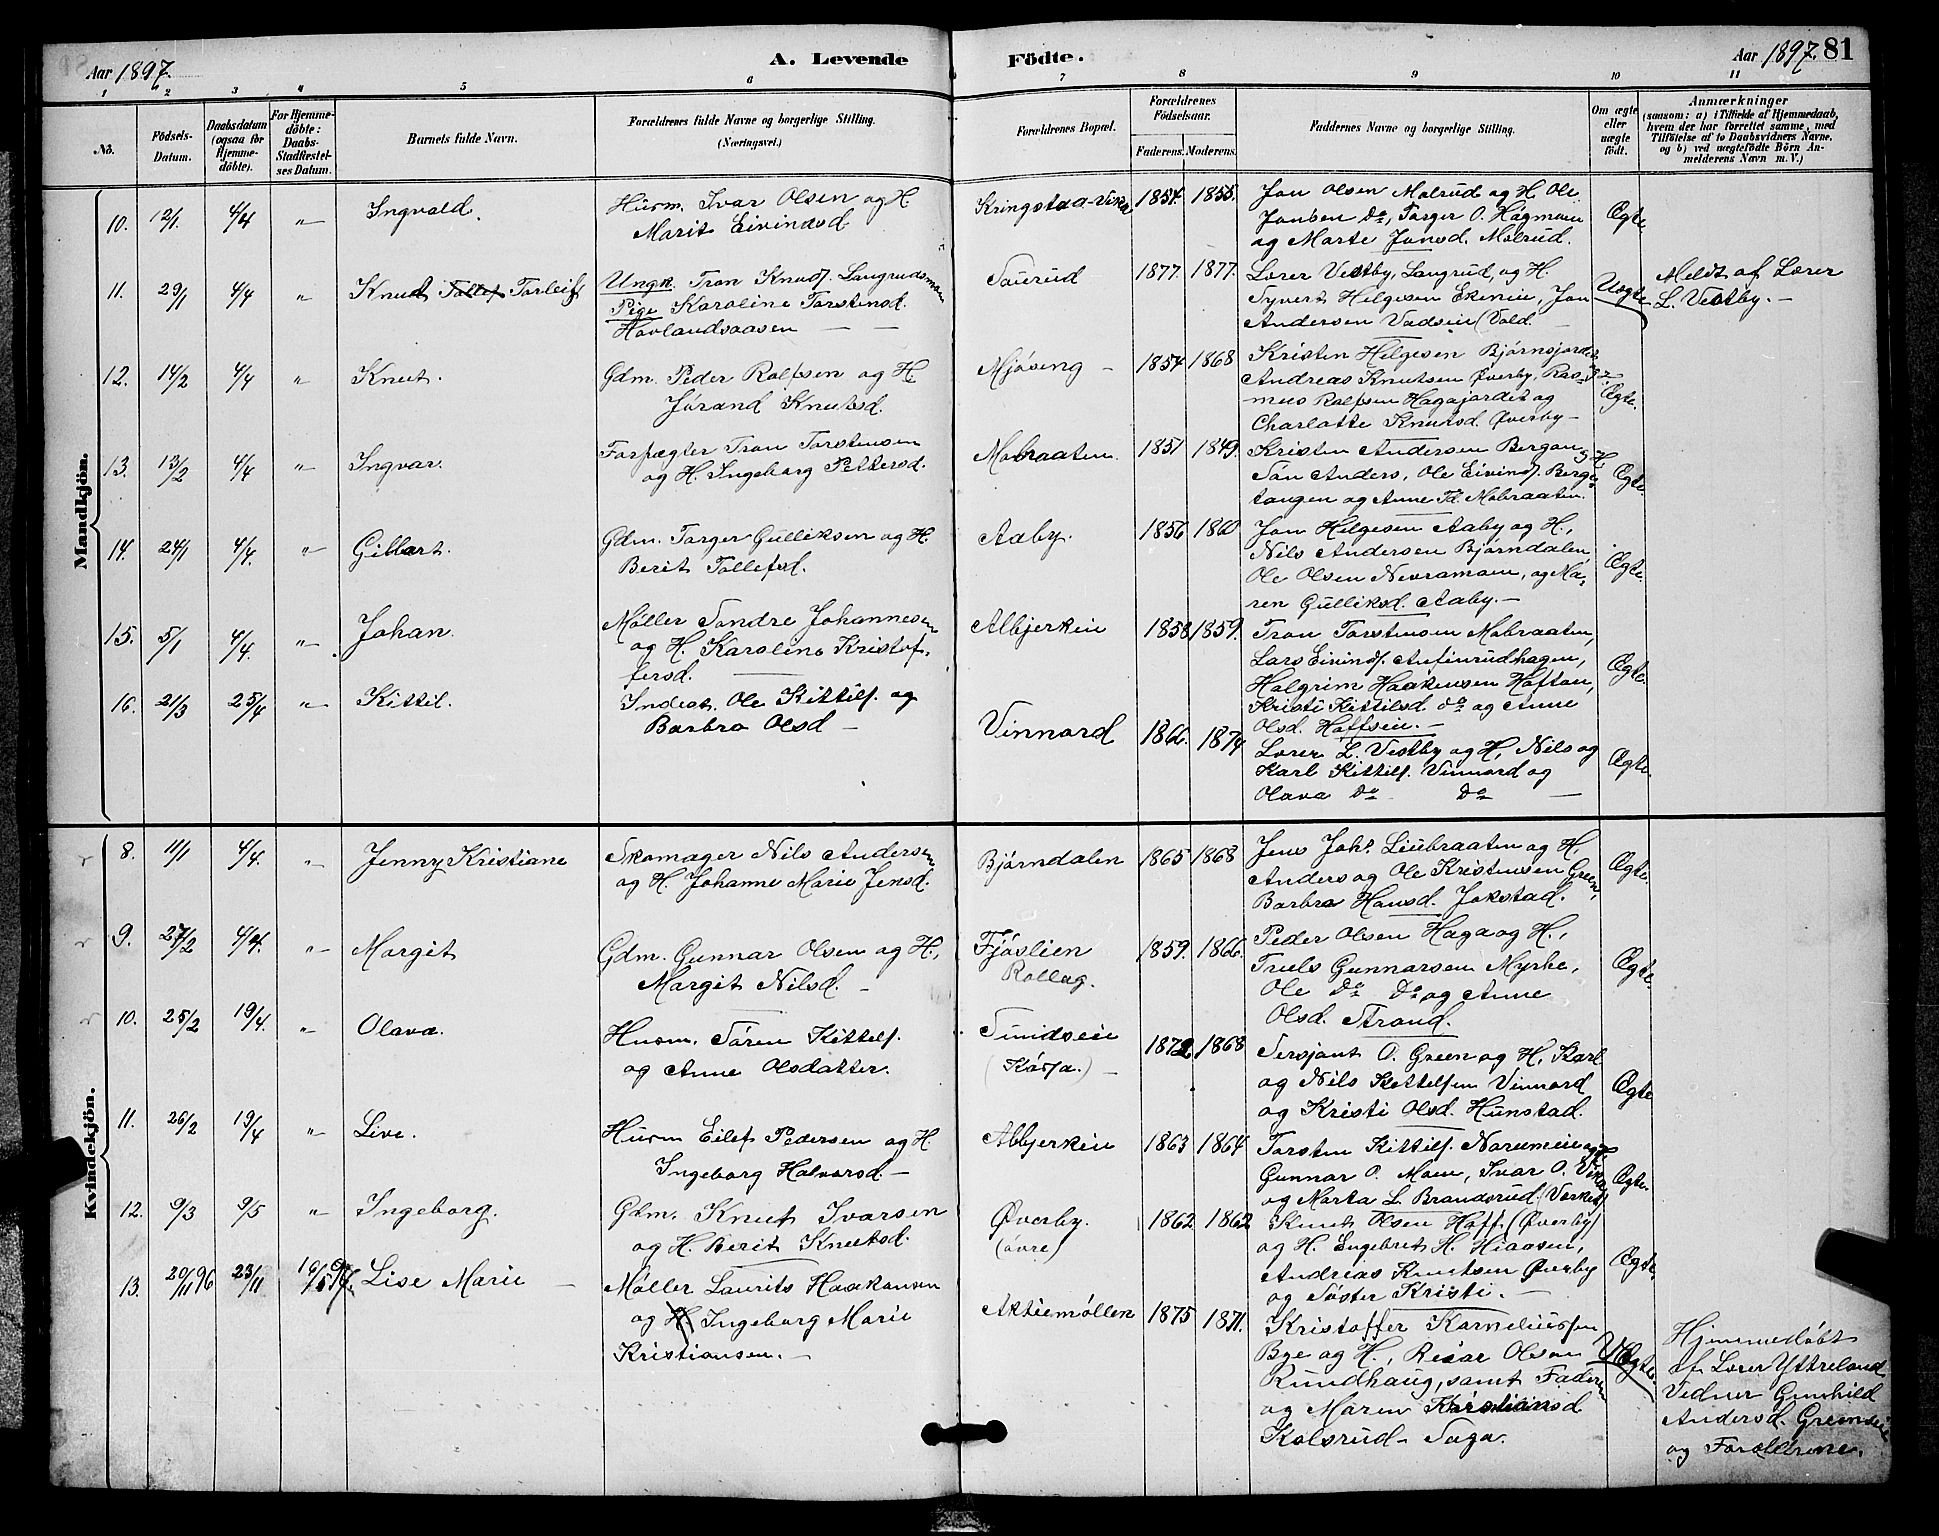 Aar 1897.
A. Levende
Födte.
Aar 1897.
81
1 2 3 4 5 6 7 8 9 10 11
No.
Födsels-
Datum.
Daabsdatum
(ogsaa for
Hjemme-
döbte).
For Hjemme-
döbte:
Daabs-
Stadfæstel-
ses Datum.
Barnets fulde Navn.
Forældrenes fulde Navne og borgerlige Stilling.
(Næringsvei.)
Forældrenes Bopæl.
Forældrenes
Födselsaar.
Faderens. Moderens.
Faddernes Navne og borgerlige Stilling.
Om ægte
eller
uægte
födt.
Anmærkninger
(saasom: a) i Tilfælde af Hjemmedaab,
hvem der har forrettet samme, med
Tilföielse af to Daabsvidners Navne,
og b) ved uægtefödte Börn An-
melderens Navn m. V.)
Mandkjön.
10. 12/1. 4/4 „ Ingvald.
Husm. Ivar Olsen og H.
Marit Eivindsd.
Kringstaa-Vika 1854. 1855.
Jon Olsen Molrud og H. Ole
Jonsen do, Torger O. Hagmoen
og Marte Jonsd. Molrud.
Ægte
11. 29/1 4/4 „ Knud Tollef Torleif
Ungk. Tron Knuds. Langrudsmoen
Pige Karoline Torstensd.
Hovlandsaasen
Saurud 1877. 1877.
Lærer Vestby, Langrud, og H.
Syvert Helgesen Ekeneie, Jon
Andersen Vadseie (Vold.
Uægte
Meldt af Lærer
L. Vestby.
12. 14/2 4/4 „ Knut.
Gdm. Peder Rolfsen og H.
Jørand Knutsd.
Mjøseng 1854 1868
Kristen Helgesen Bjørnsjordet
Andreas Knutsen Øverby, Ras-
mus Rolfsen Hagajordet og
Charlotte Knutsd. Øverby
Ægte.
13. 13/2 4/4 „ Ingvar.
Forpagter Tron Torstensen
og H. Ingeborg Pettersd.
Mobraaten 1851 1849.
Kristen Andersen Bergan og H.
Søn Anders, Ole Eivinds. Berge-
tangen og Anne Td. Mobraaten.
Ægte.
14. 24/1 4/4. „ Gilbart.
Gdm. Torger Gulliksen og H.
Berit Tollefsd.
Aaby. 1856 1860
Jon Helgesen Aaby og H.,
Nils Andersen Bjørndalen,
Ole Olsen Nevramoen, og Ma-
ren Gulliksd. Aaby.
Ægte.
15. 5/1 4/4. „ Johan.
Møller Søndre Johannesen
og H. Karoline Kristof-
fersd.
Albjerkeie 1858 1859.
Tron Torstensen Mobraaten,
Lars Eivinds. Anfinrudhagen,
Halgrim Haakensen Haftan,
Kristi Kittilsd do og Anne
Olsd. Hoffseie.
Ægte.
16. 21/3 25/4 „ Kittil.
Inderst. Ole Kittils. og
Barbro Olsd
Vinnord 1866. 1874
Lærer L. Vestby og H, Nils og
Karl Kittils. Vinnord og
Olava do do
Ægte.
Kvindekjön.
8. 11/1 4/4. „ Jenny Kristiane
Skomager Nils Andersen
og H. Johanne Marie Jensd.
Bjørndalen 1865 1868
Jens Johs. Liebraaten og H.
Anders og Ole Kristensen Green,
Barbro Hansd. Jokstad.
Ægte.
9. 27/2 4/4. „ Margit
Gdm. Gunnar Olsen og H.,
Margit Nilsd.
Fjøslien
Rollag. 1859. 1866.
Peder Olsen Haga og H.,
Truls Gunnarsen Myrke,
Ole do do og Anne
Olsd. Strand.
Ægte.
10. 25/2 19/4. „ Olava
Husm. Søren Kittels.
og Anne Olsdatter.
Sundseie
(Kørja.) 1872 1868
Sersjant O. Green og H, Karl
og Nils Kittelsen Vinnord
og Kristi Olsd. Hunstad.
Ægte
11. 26/2 19/4 „ Live.
Husm Eilef Pedersen og H
Ingeborg Halvorsd
Albjerkeie 1863 1864
Torsten Kittils. Noremeie og H.
Gunnar O. Moen, Ivar O. Vika
og Marta L. Brandsrud (Værket)
Ægte.
12. 9/3 9/5 „ Ingeborg.
Gdm. Knut Ivarsen
og H. Berit Knutsd.
Øverby.
(øvre) 1862 1862
Knut Olsen Hoff (Øverby)
og H. Engebret H. Hiaasen,
Andreas Knutsen Øverby
og Søster Kristi.
Ægte.
13. 20/11 96 23/11 16/5 97. Lise Marie
Møller Laurits Haakonsen
og H. Ingeborg Marie
Kristiansen.
Aktiemøllen 1875 1871.
Kristoffer Korneliussen
Bye og H., Reiar Olsen
Rundhaug, samt Faderen
og Maren Kristiansd
Kolsrud-Saga.
Uægte
Hjemmedøbt
af Lærer Ytreland
Vidner Gunhild
Andersd. Greenseie
og Forældrene.